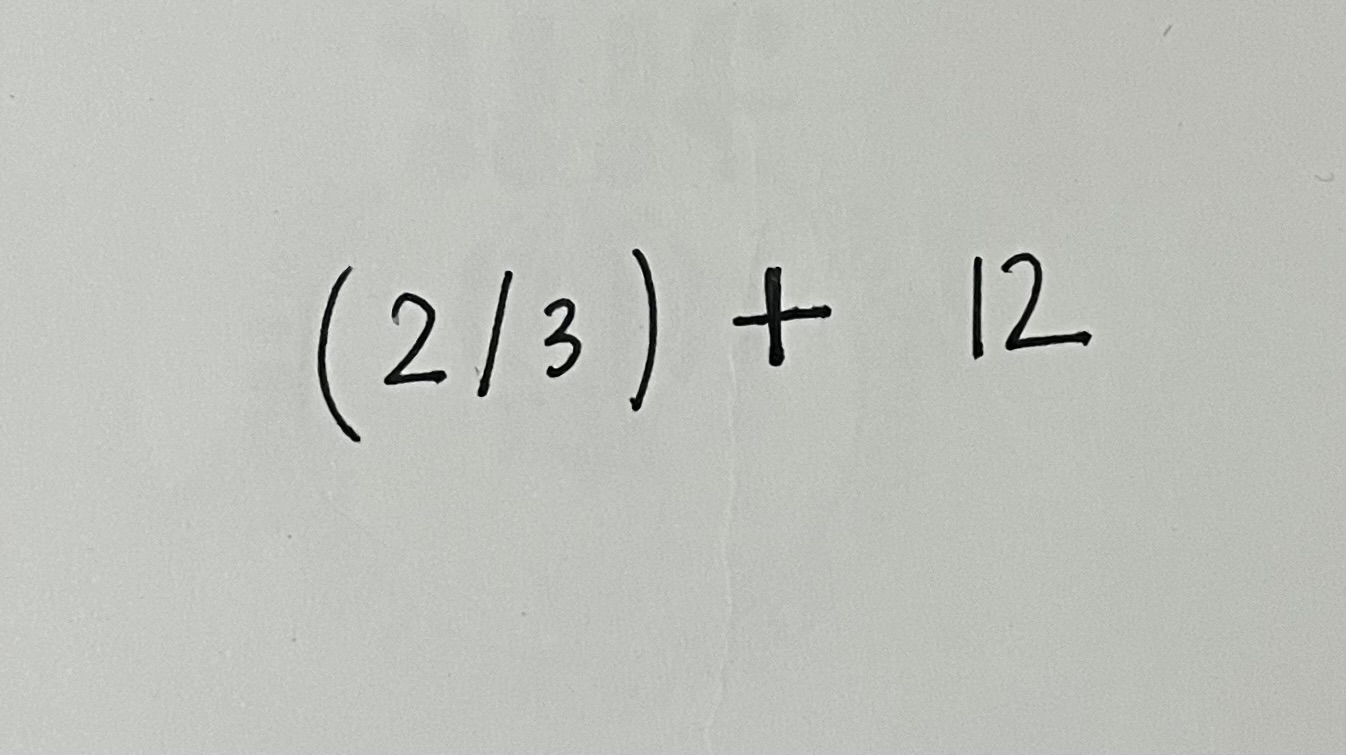 (2/3) + 12